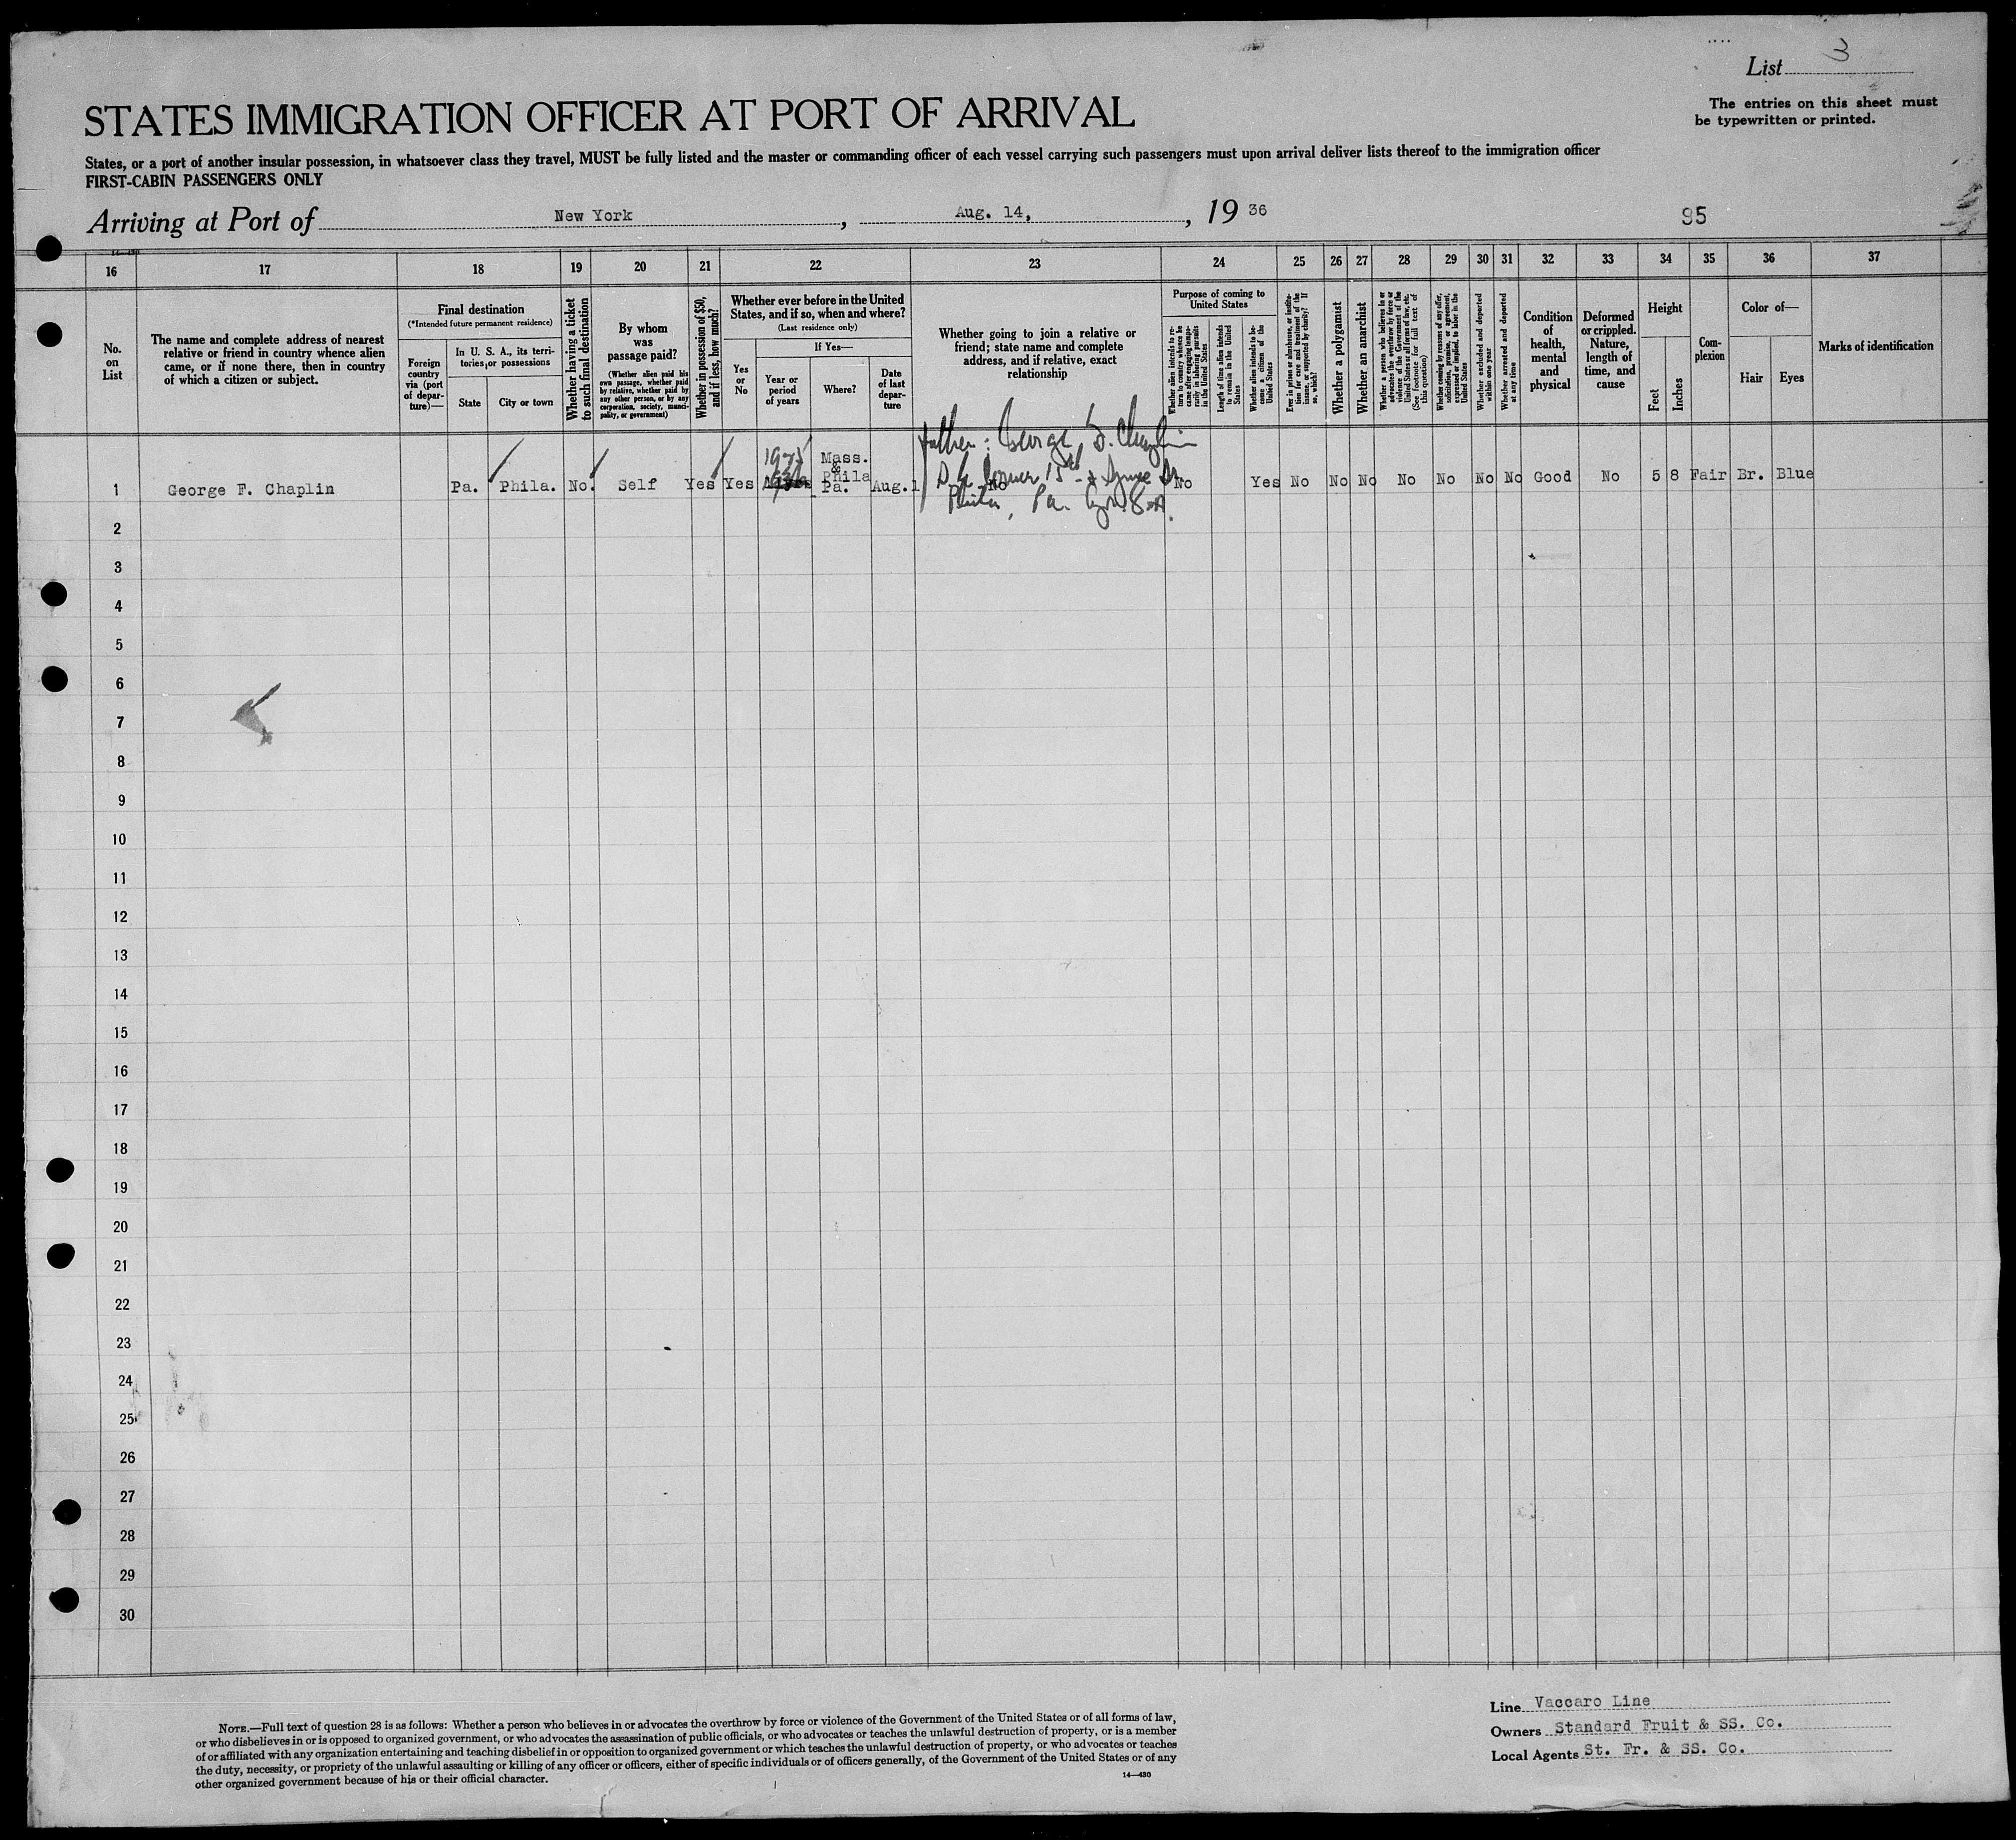 List 3
STATES IMMIGRATION OFFICER AT PORT OF ARRIVAL
The entries on this sheet must
be typewritten or printed.
States, or a port of another insular possession, in whatsoever class they travel, MUST be fully listed and the master or commanding officer of each vessel carrying such passengers must upon arrival deliver lists thereof to the immigration officer
FIRST-CABIN PASSENGERS ONLY
Arriving at Port of New York, Aug. 14, 19 36
95
16 17 18 19 20 21 22 23 24 25 26 27 28 29 30 31 32 33 34 35 36 37
No.
on
List
The name and complete address of nearest
relative or friend in country whence alien
came, or if none there, then in country
of which a citizen or subject.
Final destination
(*Intended future permanent residence)
Foreign
country
via (port
of depar-
ture)—
In U. S. A., its terri-
tories, or possessions
State
City or town
Whether having a ticket
to such final destination
By whom
was
passage paid?
(Whether alien paid his
own passage, whether paid
by relative, whether paid by
any other person, or by any
corporation, society, munici-
pality, or government)
Whether in possession of $50,
and if less, how much?
Whether ever before in the United
States, and if so, when and where?
(Last residence only)
Yes
or
No
If Yes—
Year or
period
of years
Where?
Date
of last
depar-
ture
Whether going to join a relative or
friend; state name and complete
address, and if relative, exact
relationship
Purpose of coming to
United States
Whether alien intends to re-
turn to country whence he
came after engaging tempo-
rarily in laboring pursuits
in the United States
Length of time alien intends
to remain in the United
States
Whether alien intends to be-
come a citizen of the
United States
Ever in prison or almshouse, or institu-
tion for care and treatment of the
insane, or supported by charity? If
so, which?
Whether a polygamist
Whether an anarchist
Whether a person who believes in or
advocates the overthrow by force or
violence of the Government of the
United States or all forms of law, etc.
(See footnote for full text of
this question)
Whether coming by reasons of any offer,
solicitation, promise, or agreement,
expressed or implied, to labor in the
United States
Whether excluded and deported
within one year
Whether arrested and deported
at any time
Condition
of
health,
mental
and
physical
Deformed
or crippled.
Nature,
length of
time, and
cause
Height
Feet
Inches
Com-
plexion
Color of—
Hair
Eyes
Marks of identification
Father: George D. Chaplin
Mass.
&
Phila
Pa.
1 George F. Chaplin Pa. Phila. No. Self Yes Yes Aug. No No Yes No No No No No No No Good No 5 8 Fair Br. Blue
corner 15th &
Phila, Pa.
2
3
4
5
6
7
8
9
10
11
12
13
14
15
16
17
18
19
20
21
22
23
24
25
26
27
28
29
30
NOTE.—Full text of question 28 is as follows: Whether a person who believes in or advocates the overthrow by force or violence of the Government of the United States or of all forms of law,
or who disbelieves in or is opposed to organized government, or who advocates the assassination of public officials, or who advocates or teaches the unlawful destruction of property, or is a member
of or affiliated with any organization entertaining and teaching disbelief in or opposition to organized government or which teaches the unlawful destruction of property, or who advocates or teaches
the duty, necessity, or propriety of the unlawful assaulting or killing of any officer or officers, either of specific individuals or of officers generally, of the Government of the United States or of any
other organized government because of his or their official character.
14—430
Line Vaccaro Line
Owners Standard Fruit & SS. Co.
Local Agents St. Fr. & SS. Co.